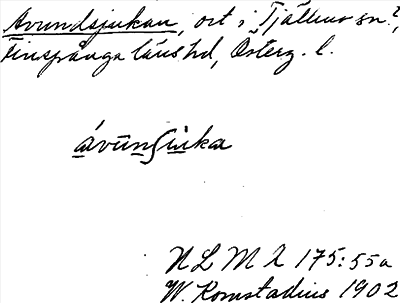 Avundsjukan, ort i Tjällmo sn?,
Finspånga läns hd, Österg. l.
avunſiuka
N L M A 175:55a
W. Komstadius 1902